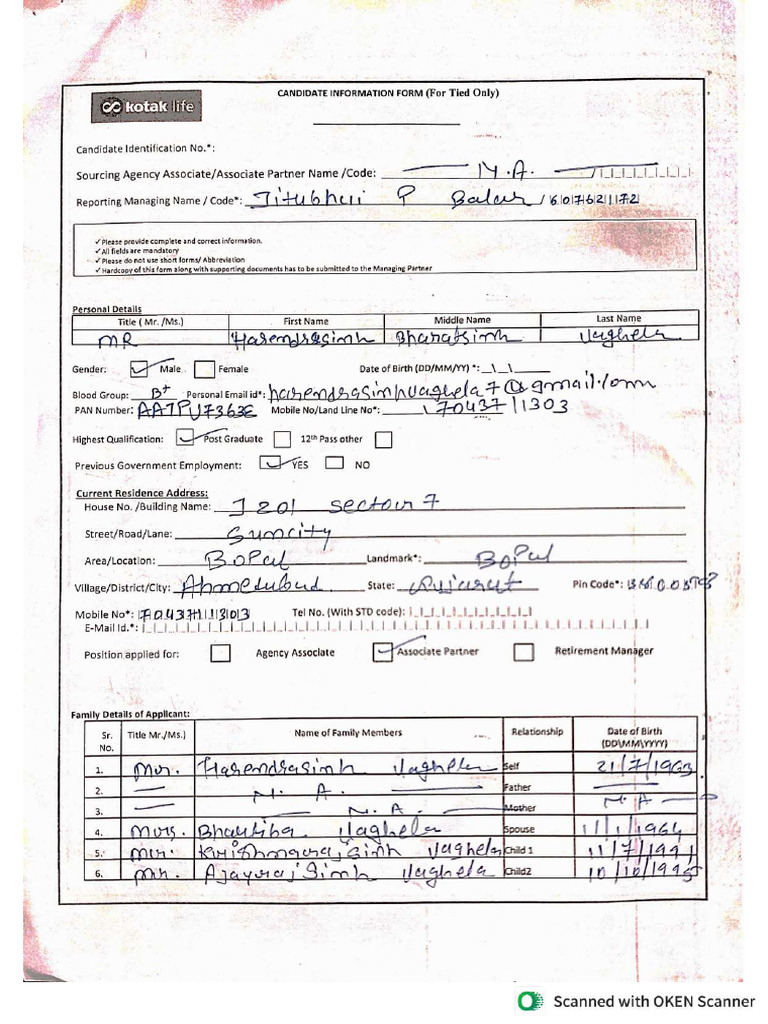 kotak life
CANDIDATE INFORMATION FORM (For Tied Only)
Candidate Identification No.*:
Sourcing Agency Associate/Associate Partner Name /Code: N.A.
Reporting Managing Name / Code*: Jitubhai P Balar / 60762172
✓Please provide complete and correct information.
✓All fields are mandatory
✓Please do not use short forms/ Abbreviation
✓Hardcopy of this form along with supporting documents has to be submitted to the Managing Partner
Personal Details
Title ( Mr. /Ms.) First Name Middle Name Last Name
MR Harendrasinh Bharatsinh Vaghela
Gender: ✓ Male Female Date of Birth (DD/MM/YY) *: __\__\__
Blood Group: B+ Personal Email id*: harendrasinhvaghela7@gmail.com
PAN Number: Mobile No/Land Line No*: 7043711303
Highest Qualification: ✓ Post Graduate 12th Pass other
Previous Government Employment: ✓ YES NO
Current Residence Address:
House No. /Building Name: J 201 Sector 7
Street/Road/Lane: Suncity
Area/Location: Bopal Landmark*: Bopal
Village/District/City: Ahmedabad State: Gujarat Pin Code*:
Mobile No*: 7043711303 Tel No. (With STD code):
E-Mail Id.*:
Position applied for: Agency Associate ✓ Associate Partner Retirement Manager
Family Details of Applicant:
Sr. No. Title Mr./Ms.) Name of Family Members Relationship Date of Birth (DD\MM\YYYY)
1. Mr. Harendrasinh Vaghela Self 21/7/1963
2. — N.A. — Father —
3. — N.A. — Mother N.A —
4. Mrs. Bhartiba Vaghela Spouse 1/1/1964
5. Mr. Krishnarajsinh Vaghela Child 1 11/7/1991
6. Mr. Ajayrajsinh Vaghela Child2 10/10/1995
Scanned with OKEN Scanner